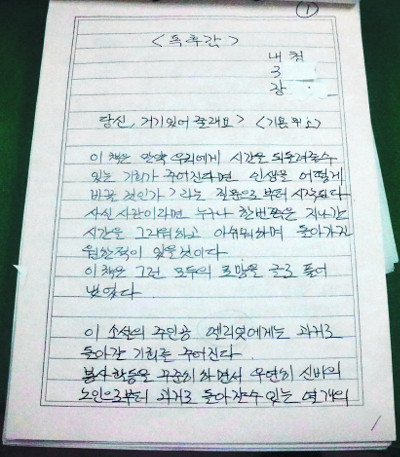 ①
<독후감>
내 첨
3
장
당신, 거기 있어 줄래요? <기욤 뮈소>
이 책은 만약 우리에게 시간을 되돌려줄수
있는 기회가 주어진다면 인생을 어떻게
바꿀 것인가? 라는 질문으로부터 시작된다
사실 사람이라면 누구나 한번쯤은 지나간
시간을 그리워하고 아쉬워하며 돌아가길
원한적이 있을것이다
이 책은 그런 모두의 로망을 글로 풀어
냈었다
이 소설의 주인공 엘리엇에게는 과거로
돌아갈 기회가 주어진다
봉사활동을 꾸준히 하면서 우연히 신비의
노인으로부터 과거로 돌아갈수 있는 열개의
1